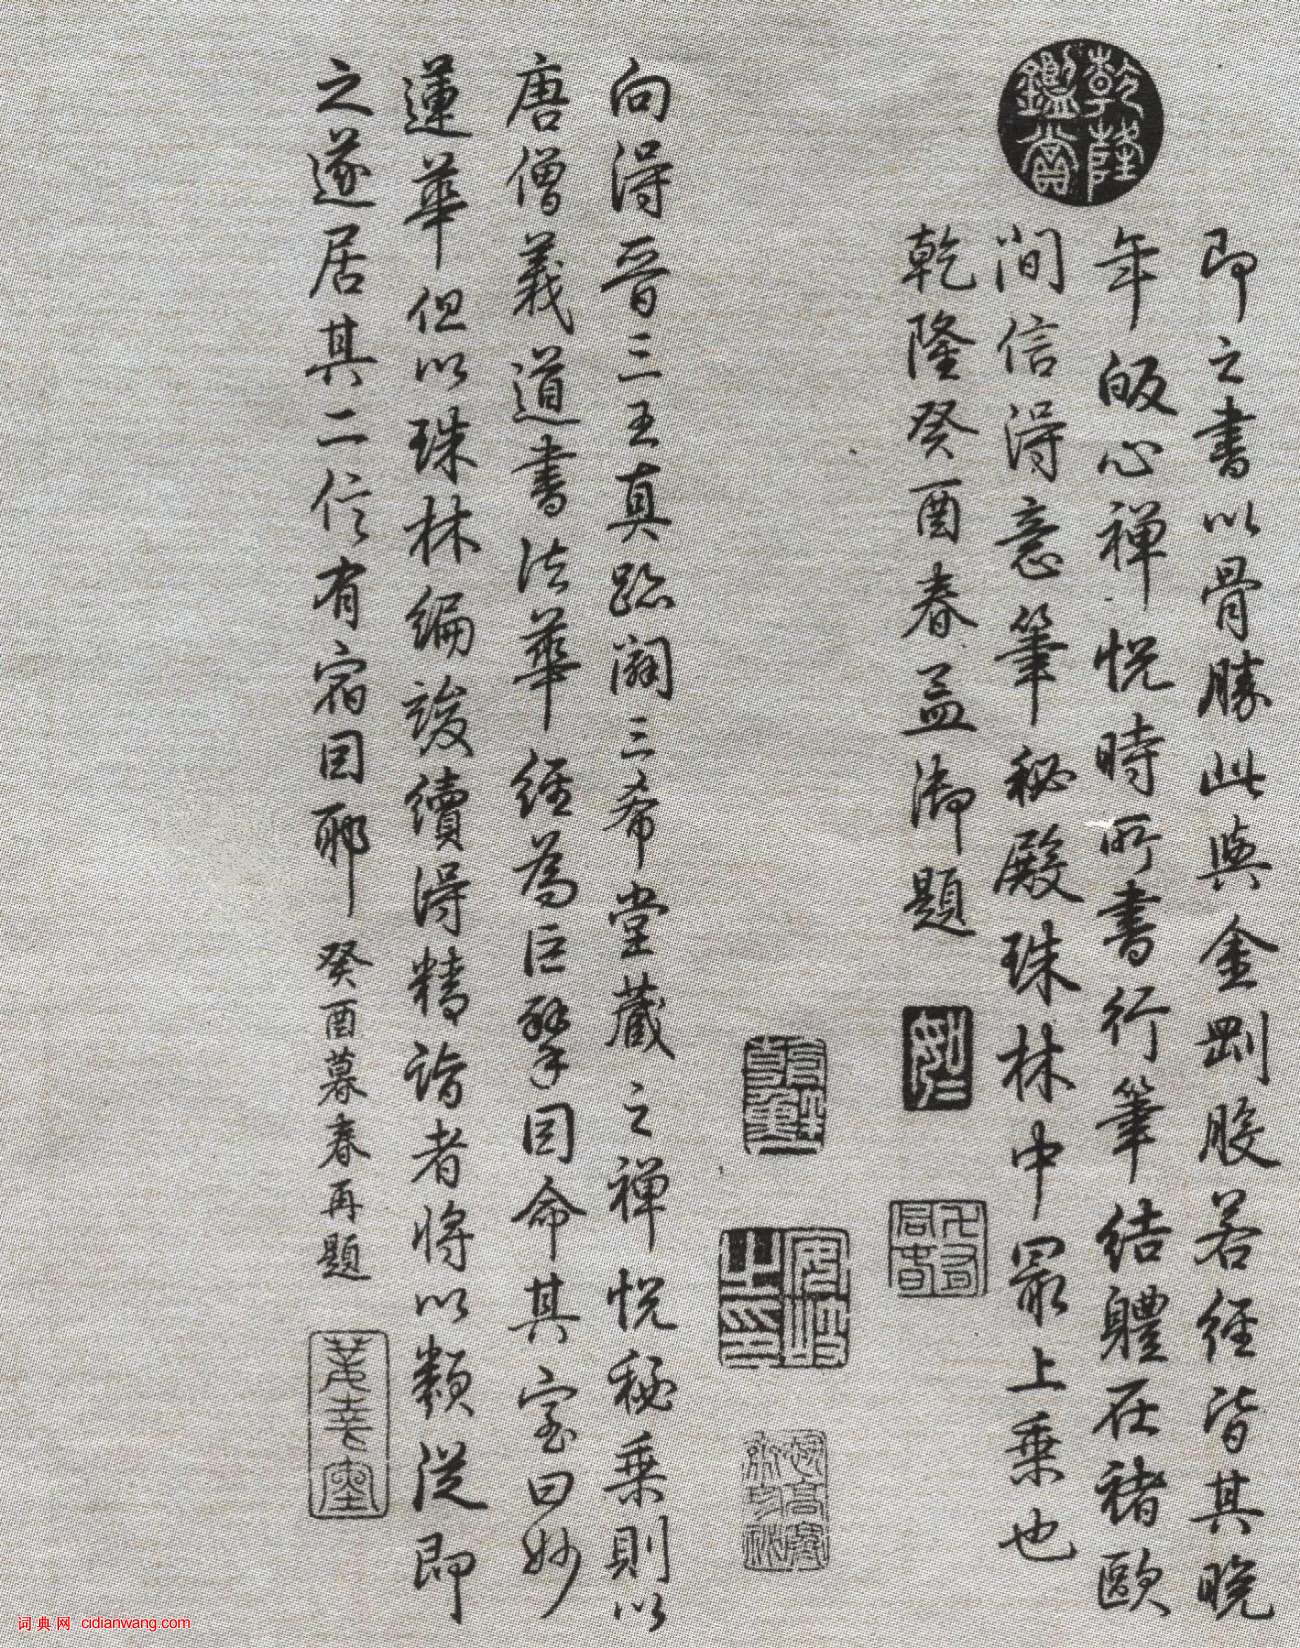 即之書以骨勝此與金剛般若經皆其晚
年皈心禪悅時所書行筆結體在褚歐
間信得意筆秘殿珠林中最上乘也
乾隆癸酉春孟御題
向得晉三王真跡闢三希堂藏之禪悅秘乘則以
唐僧義道書法華經為巨擘因命其室曰妙
蓮華但以珠林編竣續得精詣者將以類從即
之遂居其二信有宿因耶 癸酉暮春再題
乾隆鑑賞
詞典网 cidianwang.com